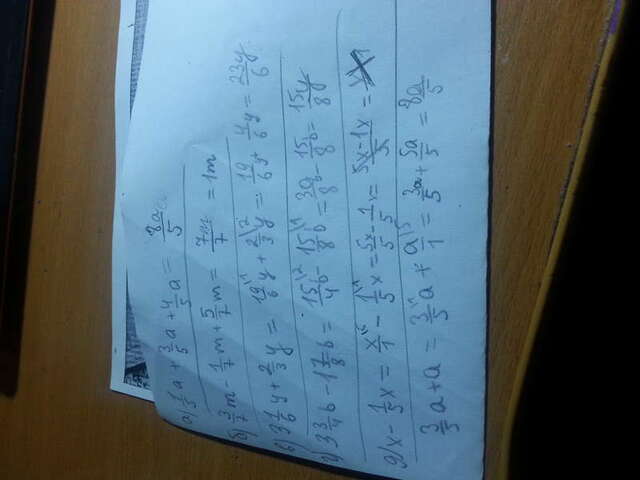 а) 1/5 a + 3/5 a + 4/5 a = 8a/5
б) 3/7 m - 1/7 m + 5/7 m = 7m/7 = 1m
в) 3 1/6 y + 2/3 y = 19/6 y + 2/3 y = 19/6 y + 4/6 y = 23y/6
г) 3 3/4 b - 1 7/8 b = 15/4 b - 15/8 b = 30/8 b - 15/8 b = 15y/8
д) x - 1/5 x = x/1 - 1/5 x = 5x/5 - 1/5 x = 5x-1x/5 =
3/5 a + a = 3/5 a + a/1 = 3a/5 + 5a/5 = 8a/5